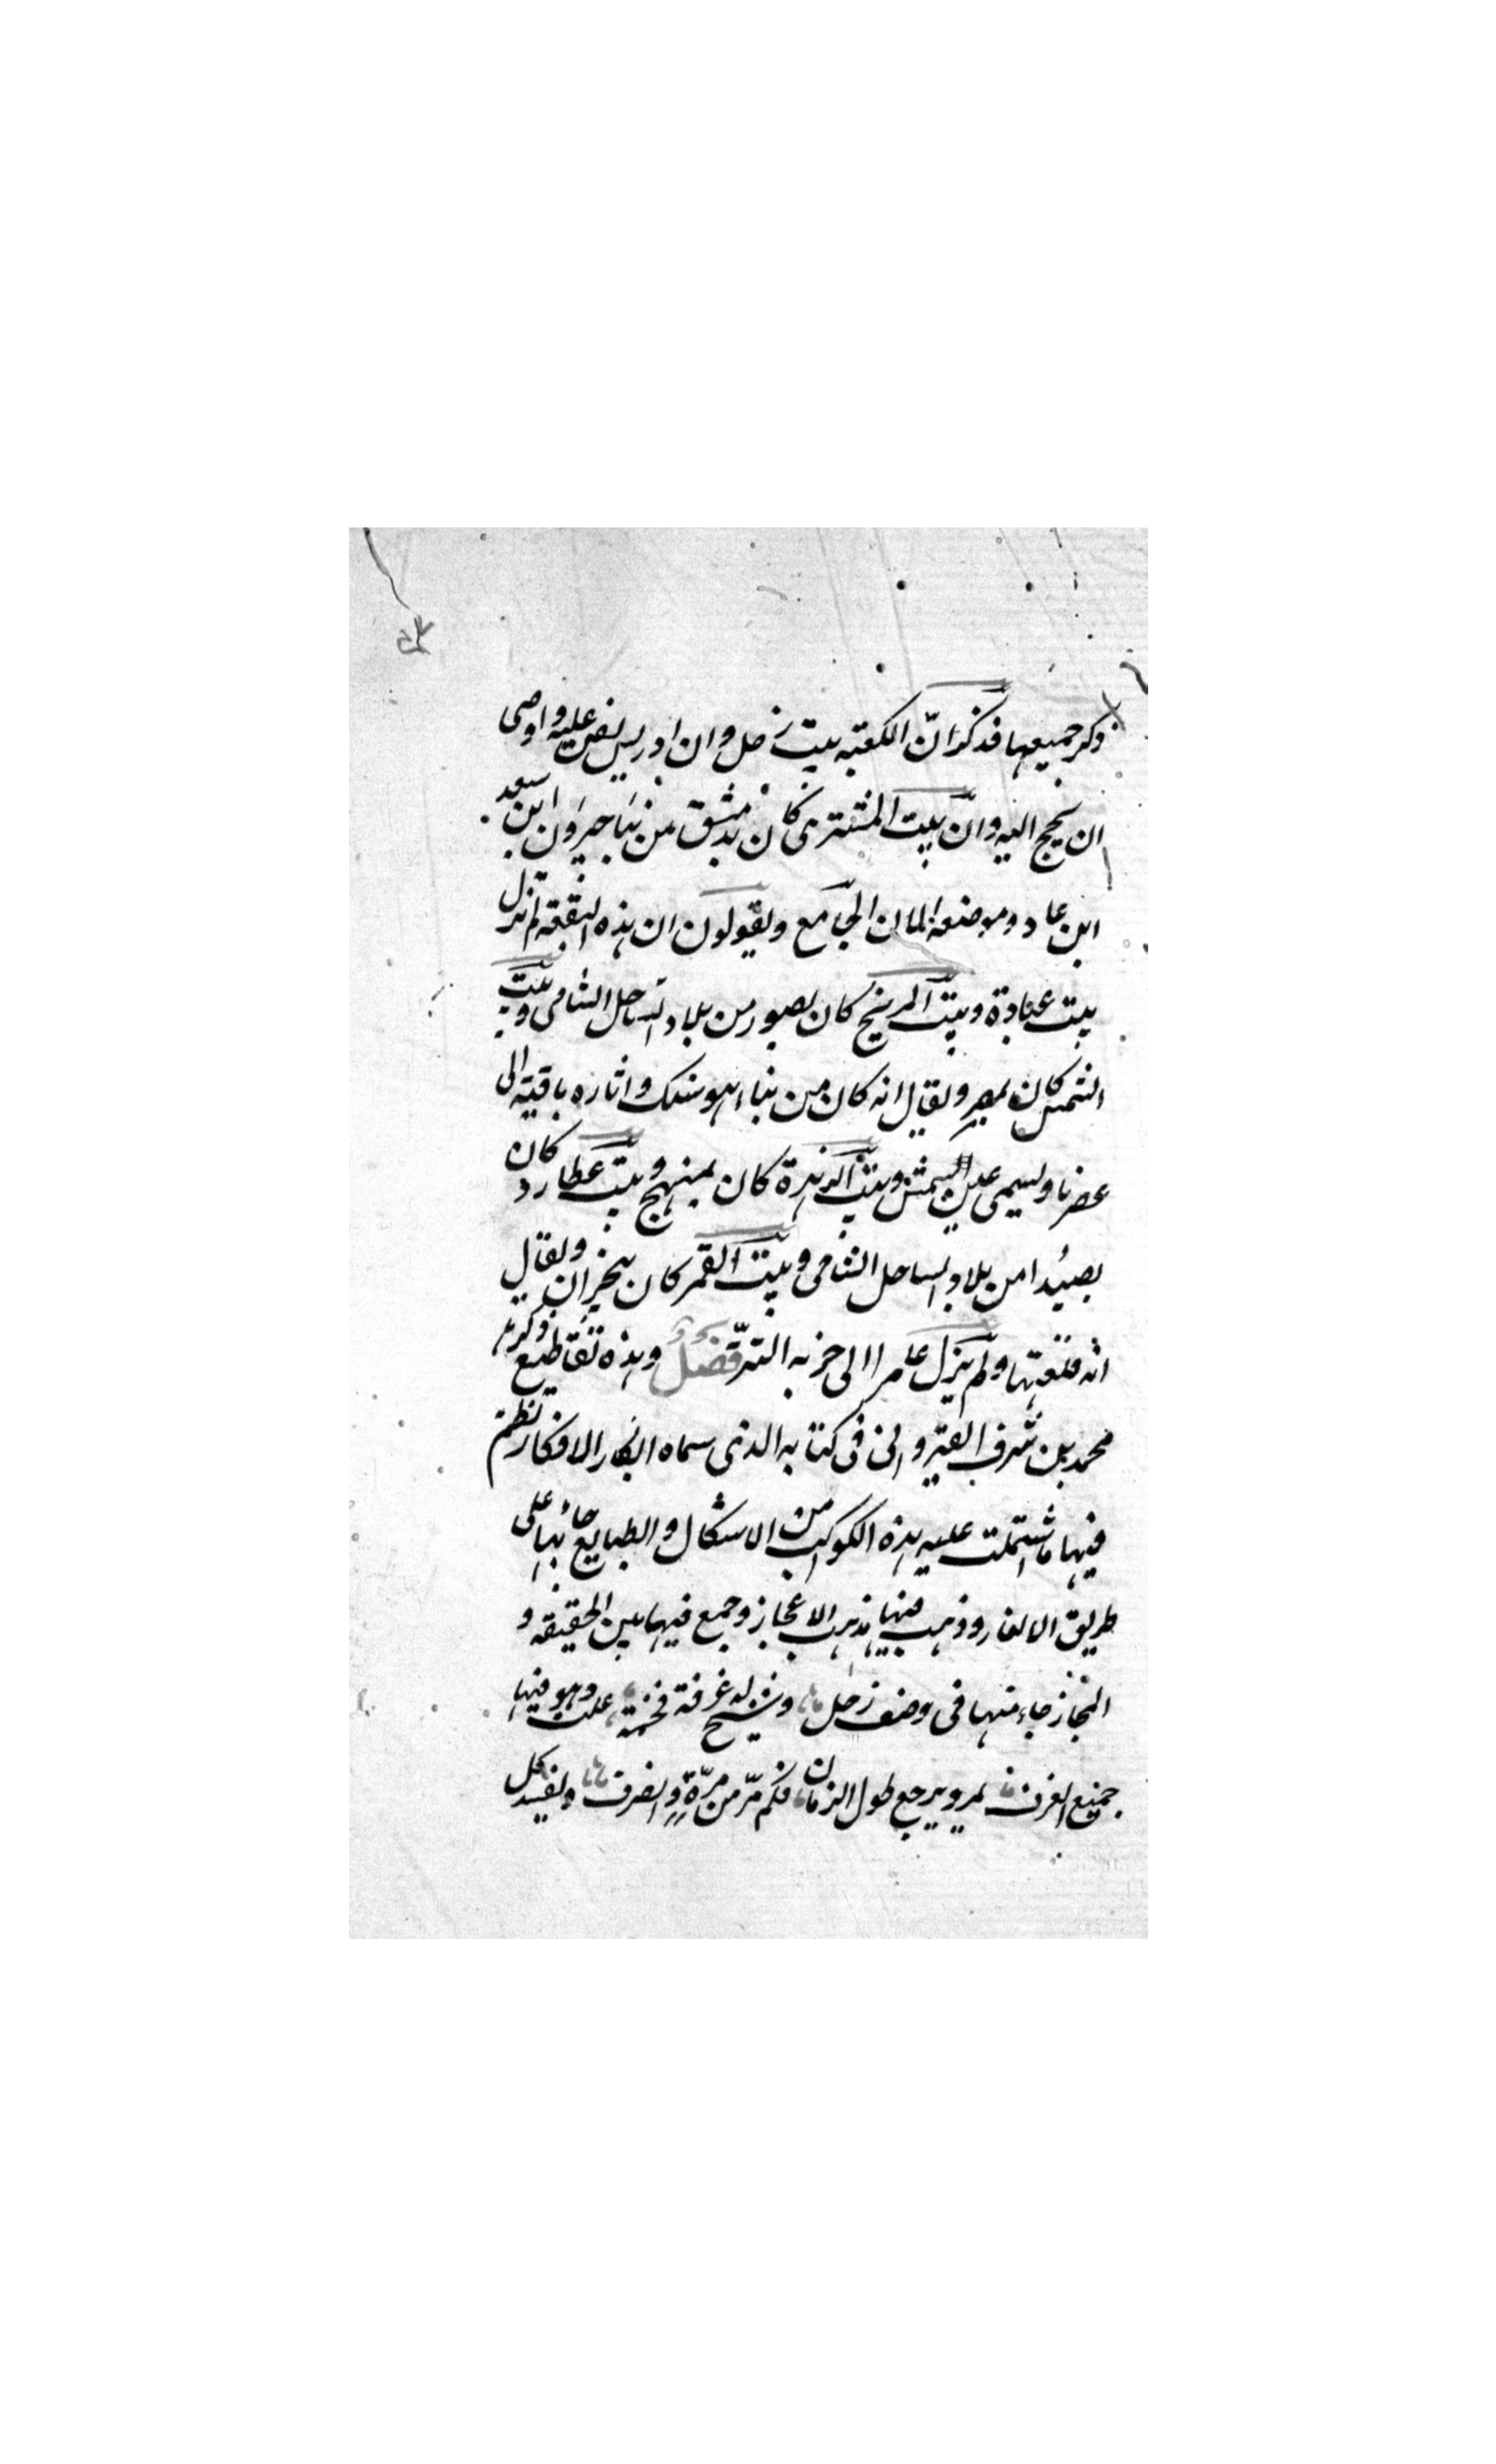 ذكر جميعها فذكر انّ الكعبه بيت زحل وان ادريس نص عليه واوصى
ان يحج اليه وانّ بيت المشترى كان بدمشق من بنا جيرون ابن سعد
ابن عاد وموضعه الان الجامع ويقولون ان هذه البقعه لم تزل
بيت عبادة وبيت المريخ كان بصور من بلاد الساحل الشامى وبيت
الشمس كان بمصر ويقال انه كان من بناء اهوشنك واثاره باقيه الى
عصرنا ويسمى عين الشمس وبيت الزهرة كان بمنبج وبيت عطارد كان
بصيدا من بلاد الساحل الشامى وبيت القمر كان بحران ويقال
انه قلعتها ولم يزل عامرا الى خربه التتر فصل وهذه تقاطيع ذكرها
محمد بن شرف القيروانى فى كتابه الذى سماه ابكار الافكار نظم
فيها ما اشتملت عليه هذه الكواكب من الاشكال والطبايع جاء بها على
طريق الالغاز وذهب فيها مذهب الاعجاز وجمع فيها بين الحقيقه و
المجاز جاء منها فى وصف زحل وشيخ له غرفة فخمة علت وهو فيها
جميع الغرف يمر ويرجع طول الزمان فكم مرّ من مرّة وانصرف ويفسد كل